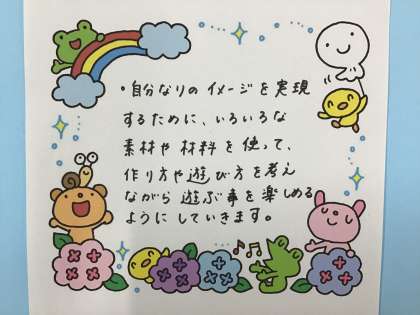 ・自分なりのイメージを実現
するために、いろいろな
素材や材料を使って、
作り方や遊び方を考え
ながら遊ぶ事を楽しめる
ようにしていきます。